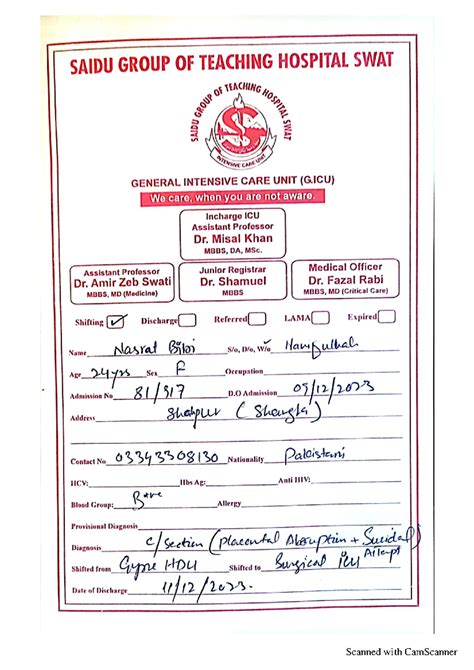 SAIDU GROUP OF TEACHING HOSPITAL SWAT
SAIDU GROUP OF TEACHING HOSPITAL SWAT
INTENSIVE CARE UNIT
GENERAL INTENSIVE CARE UNIT (G.ICU)
We care, when you are not aware.
Incharge ICU
Assistant Professor
Dr. Misal Khan
MBBS, DA, MSc.
Assistant Professor
Dr. Amir Zeb Swati
MBBS, MD (Medicine)
Junior Registrar
Dr. Shamuel
MBBS
Medical Officer
Dr. Fazal Rabi
MBBS, MD (Critical Care)
Shifting ✓ Discharge Referred LAMA Expired
Name Nasrat Bibi S/o, D/o, W/o
Age 24yrs Sex F Occupation
Admission No 81/317 D.O Admission 09/12/2023
Address Shahpur (Shangla)
Contact No 03343308130 Nationality Pakistani
HCV: Hbs Ag: Anti HIV:
Blood Group: B+ve Allergy
Provisional Diagnosis
Diagnosis C/section (Placental Abruption + Suicidal Attempt)
Shifted from Gynae HDU Shifted to Surgical ICU
Date of Discharge 11/12/2023.
Scanned with CamScanner